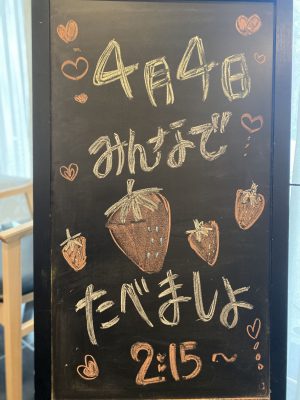 4月4日
みんなで
たべましょ
2:15～